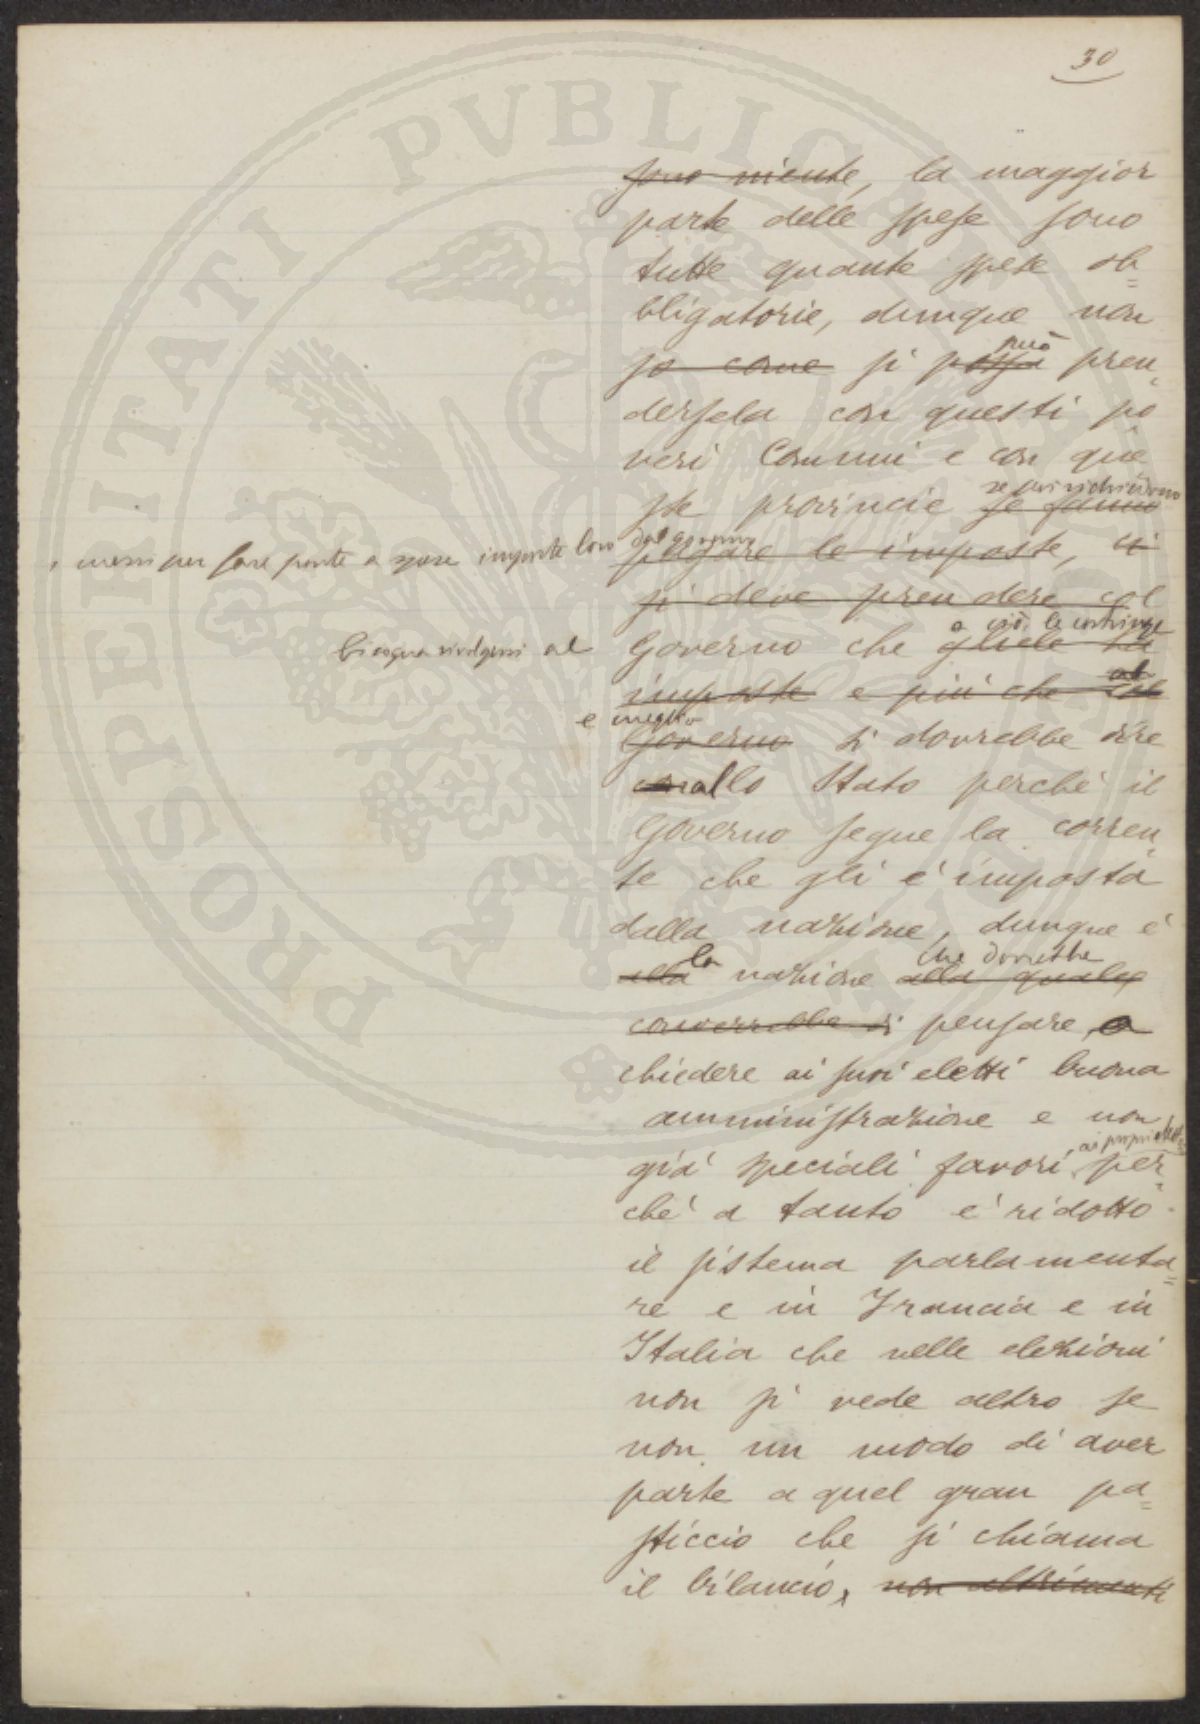 30
sono niente, la maggior
parte delle spese sono
tutte quante spese ob=
bligatorie, dunque non
può
so come si possa pren=
dersela con questi po
veri Comuni e con que
se poi richiedono
ste provincie se fanno
mezzi per fare fronte a spese imposte loro dal governo
pagare le imposte, ci
si deve prendere col
a ciò le costringe
bisogna rivolgersi al Governo che gliele ha
al
imposte e più che il
e meglio
Governo si dovrebbe dire
allo Stato perché il
Governo segue la corren=
te che gli è imposta
dalla nazione, dunque è
la che dovrebbe
alla nazione alla quale
converrebbe di pensare, a
chiedere ai suoi eletti buona
amministrazione e non
ai propri
già speciali favori, per=
ché a tanto è ridotto
il sistema parlamenta=
re e in Francia e in
Italia che nelle elezioni
non si vede altro se
non un modo di aver
parte a quel gran pa=
sticcio che si chiama
il bilancio, non altrimenti
PROSPERITATI PVBLICAE